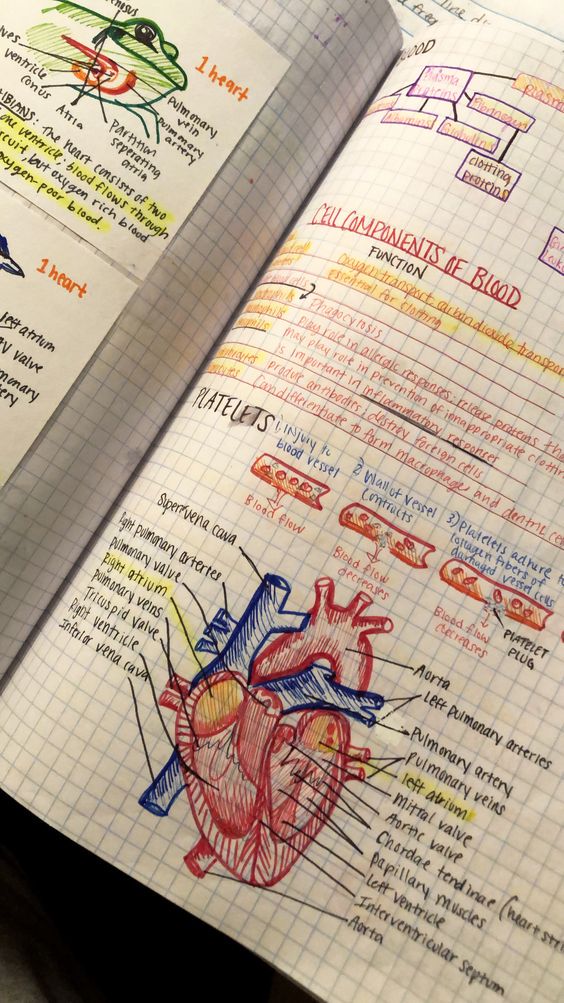 1 heart
ventricle
conus
Atria
Partition
seperating
atria
pulmonary
vein
pulmonary
artery
The heart consists of two
one ventricle. blood flows through
, but oxygen rich blood
oxygen-poor blood.
1 heart
left atrium
AV valve
plasma
proteins
Albumins
Globulins
Fibrinogen
clotting
proteins
CELL COMPONENTS OF BLOOD
FUNCTION
oxygen transport, carbon dioxide transport
essential for clotting
Phagocytosis
Play role in allergic responses; release proteins
may play role in prevention of innappropriate clotting
is important in inflammatory responses
produce antibodies; destroy foreign cells
can differentiate to form macrophages and dentritic
PLATELETS
1) Injury to
blood vessel
Blood flow
2 Wall of vessel
contracts
Blood flow
decreases
3) Platelets adhere to
collagen fibers of
damaged vessel cells
Blood flow
decreases
PLATELET
PLUG
Superior vena cava
Right pulmonary arteries
Pulmonary valve
Right atrium
Pulmonary veins
Tricuspid valve
Right ventricle
Inferior vena cava
Aorta
Left pulmonary arteries
Pulmonary artery
Pulmonary veins
left atrium
Mitral valve
Aortic valve
Chordae tendinae (heart
papillary muscles
Left ventricle
Interventricular septum
Aorta